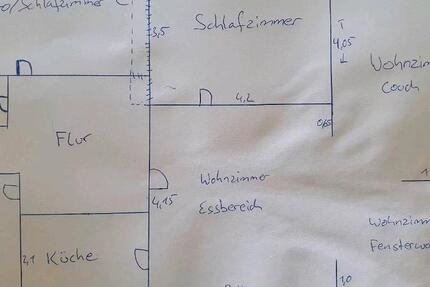 Schlafzimmer
3,5
Schlafzimmer
4,05
Couch
4,2
0,65
Flur
Wohnzimmer
4,15
Essbereich
1
Küche
2,1
1,0